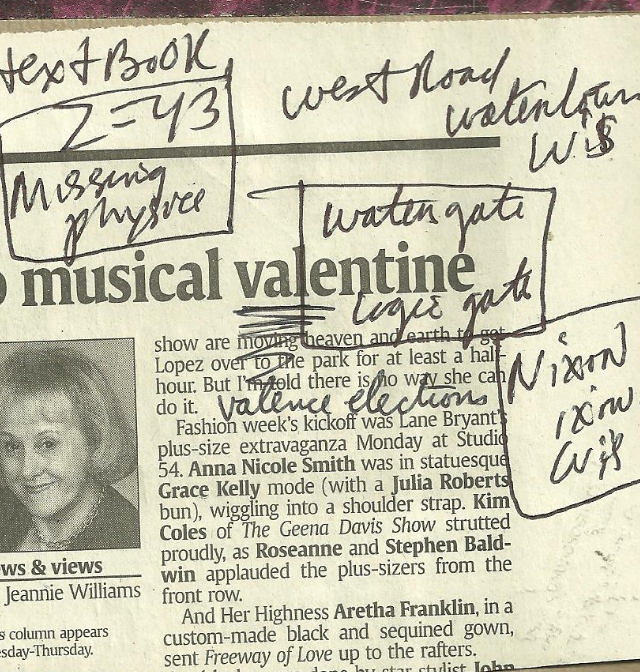 textBOOK
Z=43
Missing
physics
West Road
watertown
Wis
watergate
logic gate
o musical valentine
show are moving heaven and earth to get
Lopez over to the park for at least a half-
hour. But I'm told there is no way she can
do it.
valence elections
Nixon
ixion
Wis
Fashion week's kickoff was Lane Bryant's
plus-size extravaganza Monday at Studio
54. Anna Nicole Smith was in statuesque
Grace Kelly mode (with a Julia Roberts
bun), wiggling into a shoulder strap. Kim
Coles of The Geena Davis Show strutted
proudly, as Roseanne and Stephen Bald-
win applauded the plus-sizers from the
front row.
And Her Highness Aretha Franklin, in a
custom-made black and sequined gown,
sent Freeway of Love up to the rafters.
by star stylist John
ws & views
Jeannie Williams
s column appears
sday-Thursday.